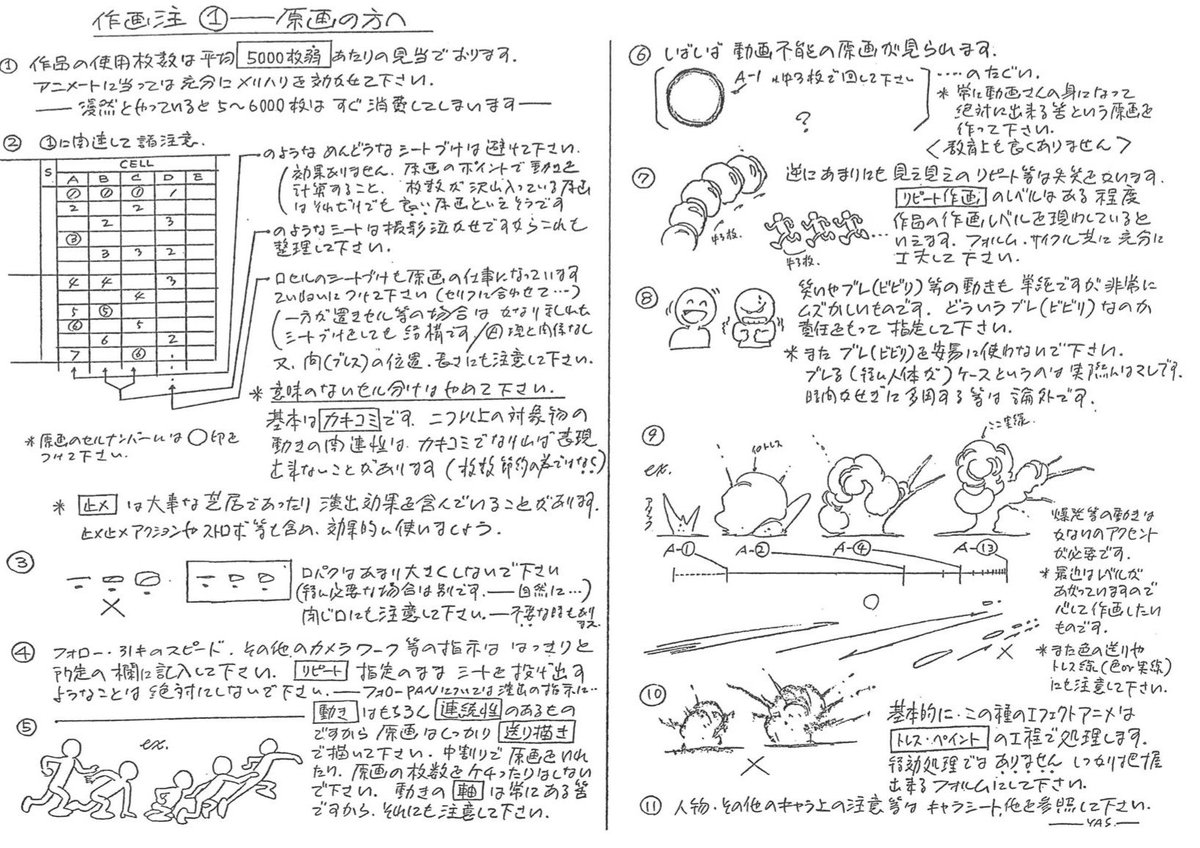 作画注 ①——原画の方へ
① 作品の使用枚数は平均 5000枚弱 あたりの見当でおります。
アニメートに当っては充分にメリハリを効かせて下さい。
——漫然とやっていると5〜6000枚はすぐ消費してしまいます——
② ①に関連して諸注意.
S CELL
A B C D E
① ① ① 1
2 2
2 3
③
3 3 2
4 4 3
4
5 ⑤
⑥ 5
6 2
7 ⑥ 1
のような めんどうなシートづけは避けて下さい.
効果ありません. 原画のポイントで動きを
計算すること、枚数が沢山入っている原画
はそれだけでも良い原画といえそうです
のようなシートは撮影泣かせですからこれも
整理して下さい.
口セルのシートづけも原画の仕事になっています
ていねいにつけて下さい(セリフに合わせて…)
シートづけをしても結構です
又、間(ブレス)の位置、長さにも注意して下さい.
*意味のないセル分けはやめて下さい.
基本は カキコミ です. 二つ以上の対象物の
動きの関連性は、カキコミでなければ表現
出来ないことがあります(枚数節約の為ではなく)
*原画のセルナンバーには○印を
つけて下さい.
* 止メ は大事な芝居であったり 演出効果を含んでいることがあります.
止メ止メアクションやストロボ等も含め、効果的に使いましょう.
③ 口パクはあまり大きくしないで下さい
(特に必要な場合は別です.——自然に…)
閉じ口にも注意して下さい.——不要な時もあります
④ フォロー・引キのスピード、その他のカメラワーク等の指示は はっきりと
所定の欄に記入して下さい. リピート 指定のまま シートを投げ出す
ようなことは絶対にしないで下さい.——フォローPANについては演出の指示に…
⑤ 動き はもちろん 連続性 のあるもの
ですから原画はしっかり 送り描き
で描いて下さい. 中割りで原画をいれ
たり、原画の枚数をケチったりはしない
で下さい. 動きの 軸 は常にある筈
ですから、それにも注意して下さい.
ex.
⑥ しばしば 動画不能の原画が見られます.
A-1 中3枚で回して下さい
?
……のたぐい.
*常に動画さんの身になって
絶対に出来る筈という原画を
作って下さい.
<教育上も良くありません>
⑦ 逆にあまりにも見え見えのリピート等は失笑を買います.
リピート作画 のレベルはある程度
作品の作画レベルを現わしていると
いえます. フォルム、サイクル共に充分に
工夫して下さい.
中3枚.
中3枚.
⑧ 笑いやブレ(ビビリ)等の動きも 単純ですが非常に
ムズかしいものです. どういうブレ(ビビリ)なのか
責任をもって指定して下さい.
*またブレ(ビビリ)を安易に使わないで下さい.
ブレる(特に人体が)ケースというのは実際にはマレです.
時間かせぎに多用する等は論外です.
⑨ ex.
色トレス
ここ実線
A-① A-② A-④ A-⑬
爆発等の動きは
かなりのアクセント
が必要です.
*最近はレベルが
あがっていますので
心して作画したい
ものです.
*また色の送りや
トレス線(色or実線)
にも注意して下さい
⑩ 基本的に、この種のエフェクトアニメは
トレス・ペイント の工程で処理します.
特効処理ではありません しっかり把握
出来るフォルムにして下さい.
⑪ 人物・その他のキャラ上の注意等は キャラシート、他を参照して下さい.
——YAS.——